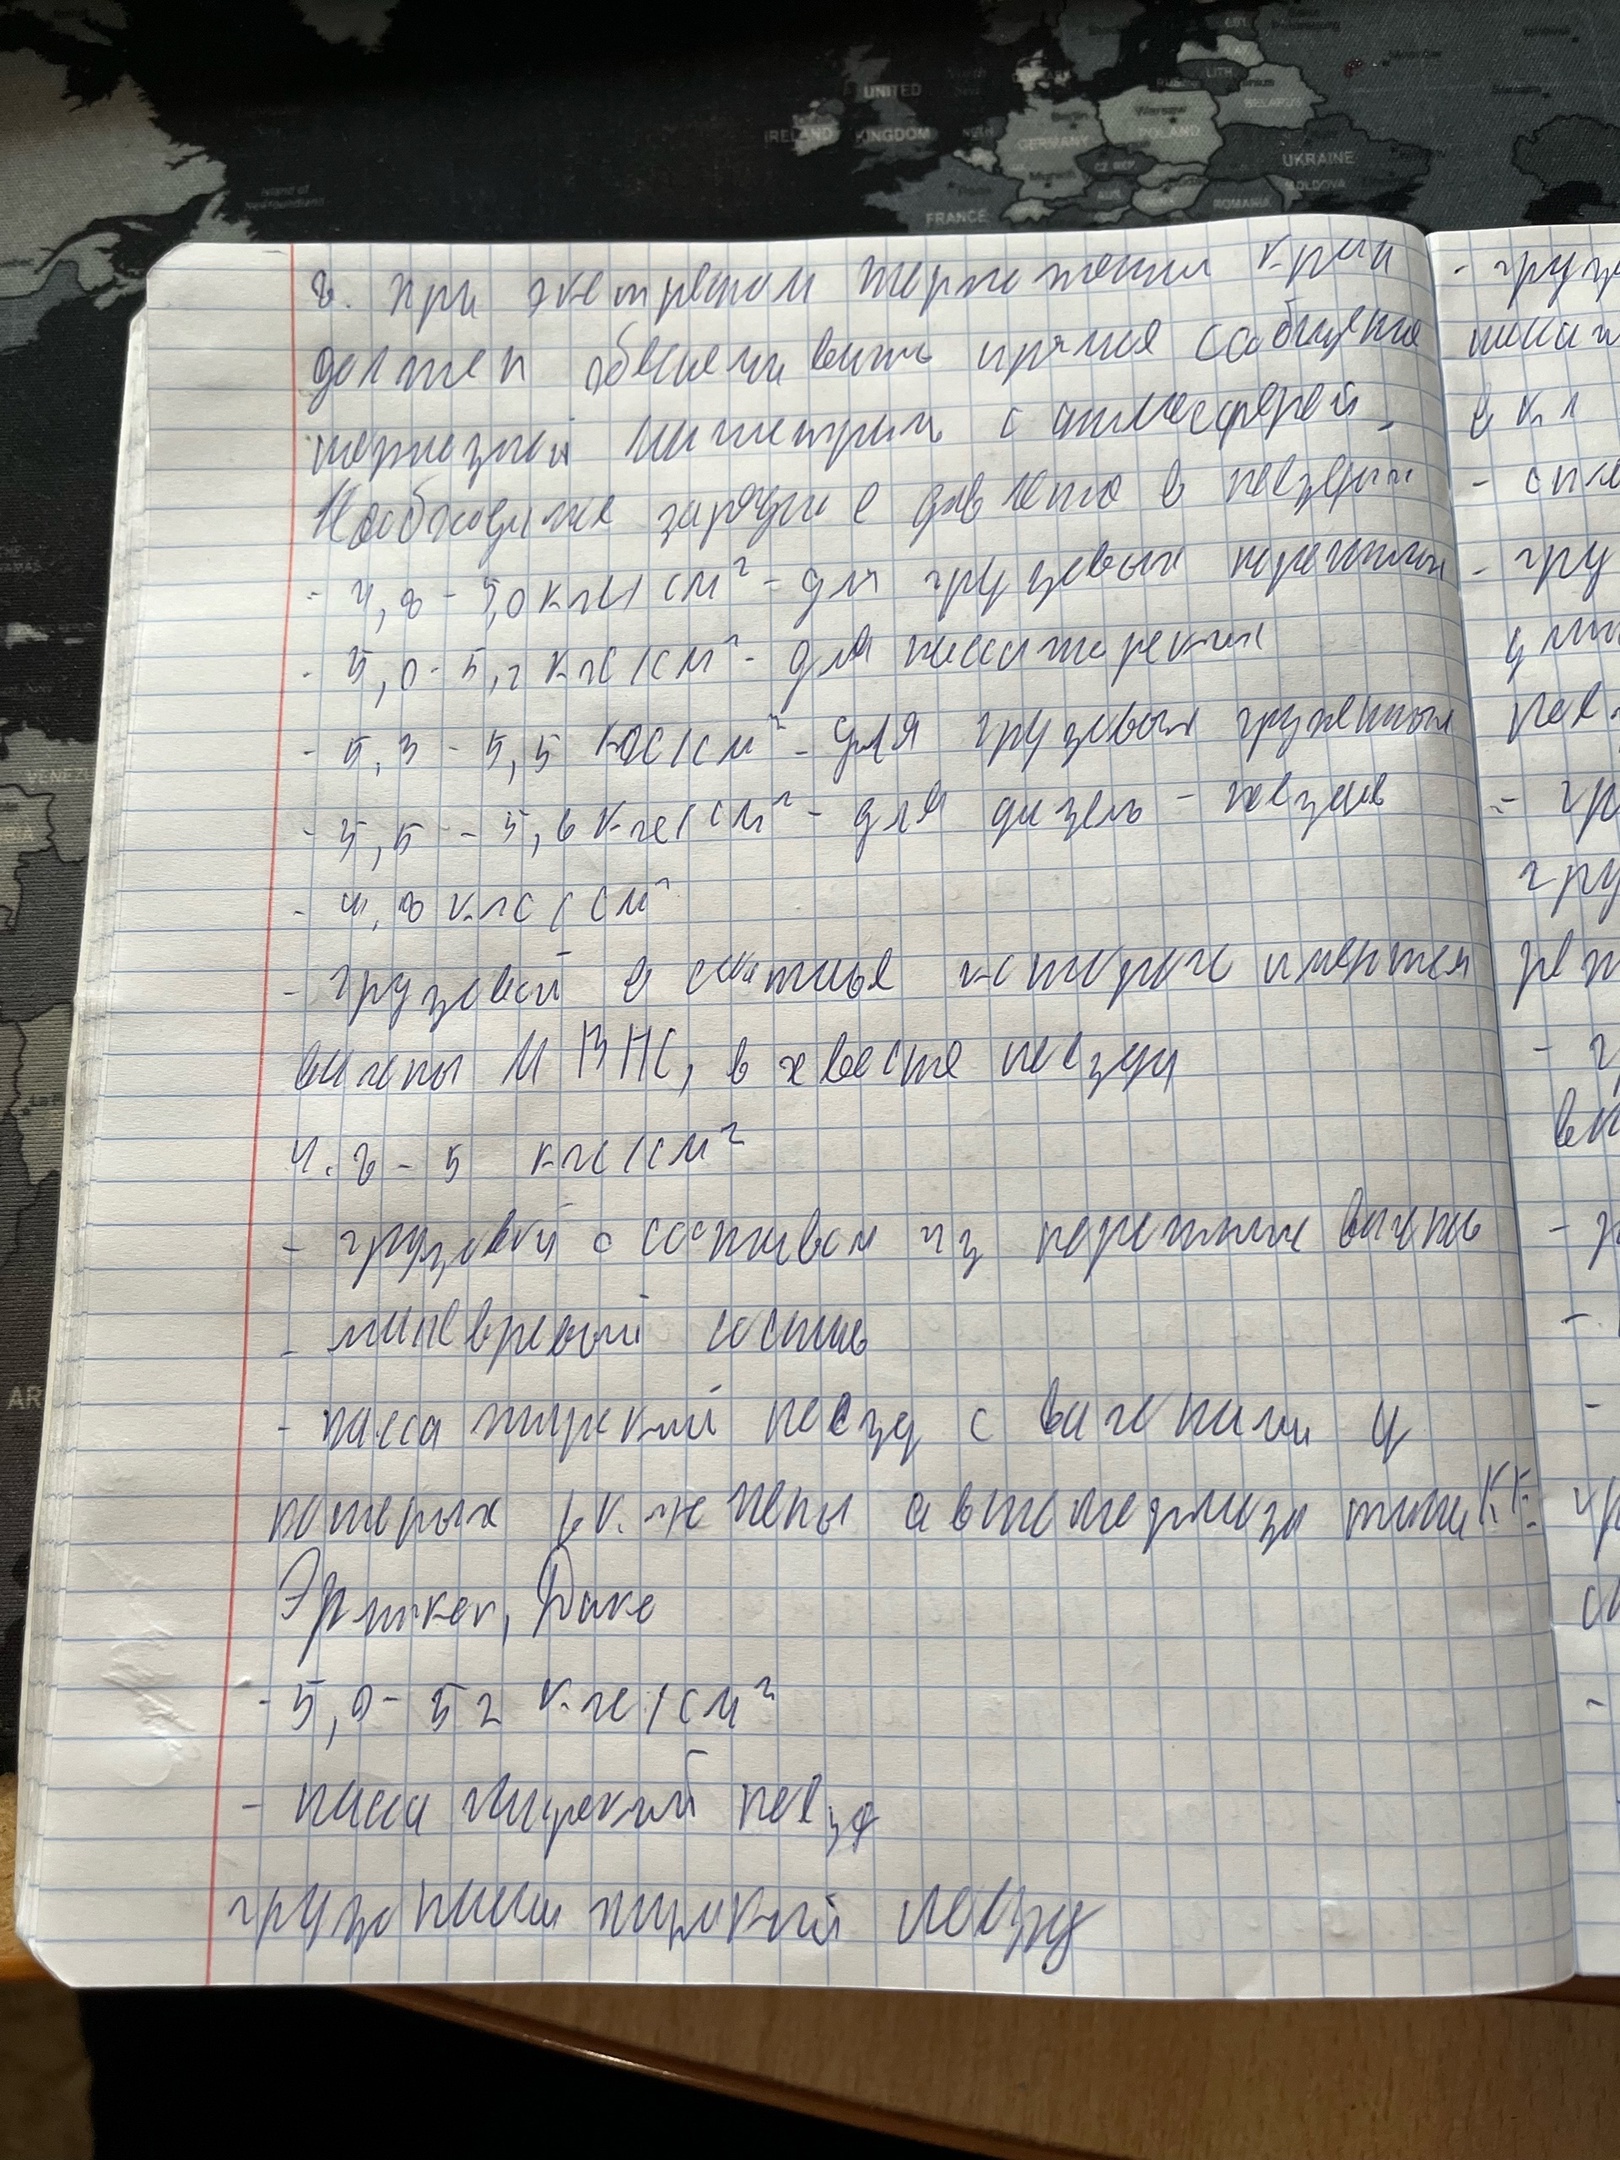 UNITED
KINGDOM
IRELAND
GERMANY
POLAND
BELARUS
UKRAINE
MOLDOVA
ROMANIA
FRANCE
8. при экстренном торможении кран
должен обеспечивать прямое сообщение
тормозной магистрали с атмосферой.
Необходимое зарядное давление в поездах
- 4,8 - 5,0 кгс/см² - для грузовых порожних
- 5,0 - 5,2 кгс/см² - для пассажирских
- 5,3 - 5,5 кгс/см² - для грузовых груженых
- 5,5 - 5,6 кгс/см² - для дизель - поездов
- 4,8 кгс/см²
- грузовой в составе которого имеются
вагоны МВПС, в хвосте поезда
4.8 - 5 кгс/см²
- грузовой с составом из порожних вагонов
- маневровый состав
- пассажирский поезд с вагонами у
которых включены автотормоза типа КЕ
Эрликон, Дако
- 5,0 - 5 2 кгс/см²
- пассажирский поезд
грузопассажирский поезд
- груз
вкл
- гру
дли
- гр
гру
- г